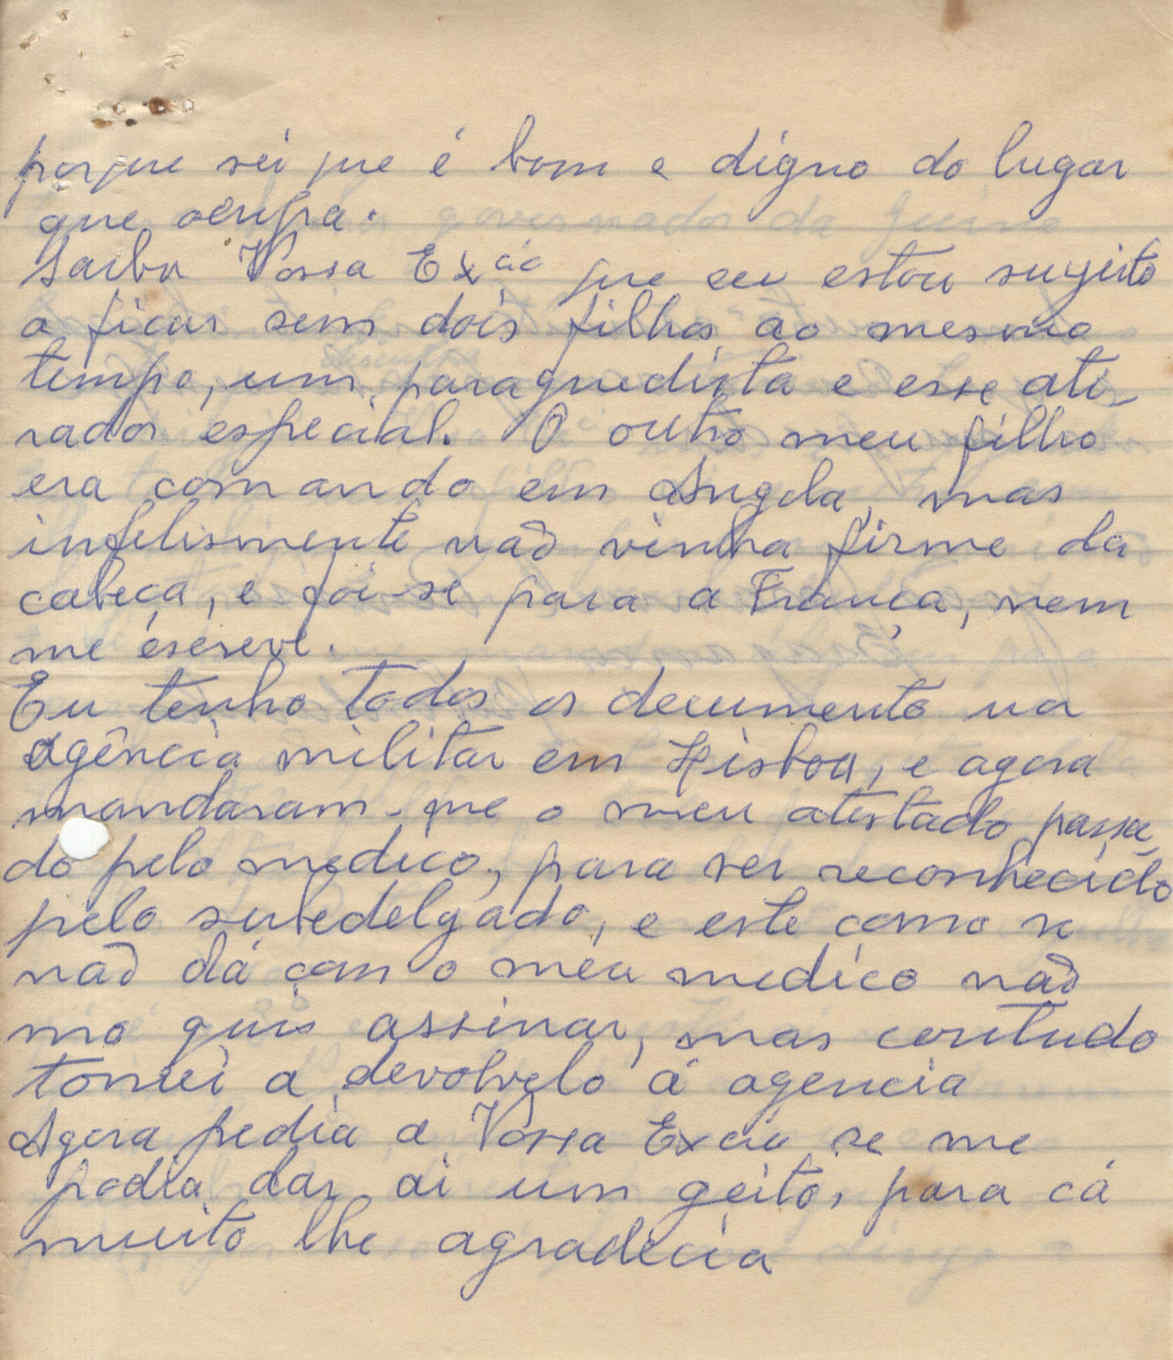 porque sei que é bom e digno do lugar
que ocupa.
Saiba Vossa Exciá que eu estou sugeito
a ficar sem dois filhos, ao mesmo
tempo, um paraquedista e esse ati-
rador especial. O outro meu filho
era comando em Angola, mas
infelismente não vinha firme da
cabeça, e foi-se para a França, nem
me escreve.
Eu tenho todos os documento na
Agência militar em Lisboa, e agora
mandaram-que o meu atestado passa
do pelo medico, para ser reconhecido
pelo subedelgado, e este como se
não dá com o meu medico não
mo quis assinar, mas contudo
tornei a devolvelo á agencia
Agora pedia a Vossa Excia se me
podia dar ai um geito, para cá
muito lhe agradecia